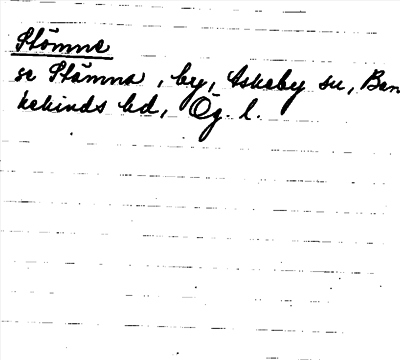 Stömne
se Stämna, by, Askeby sn, Ban
kekinds hd, Ög. l.